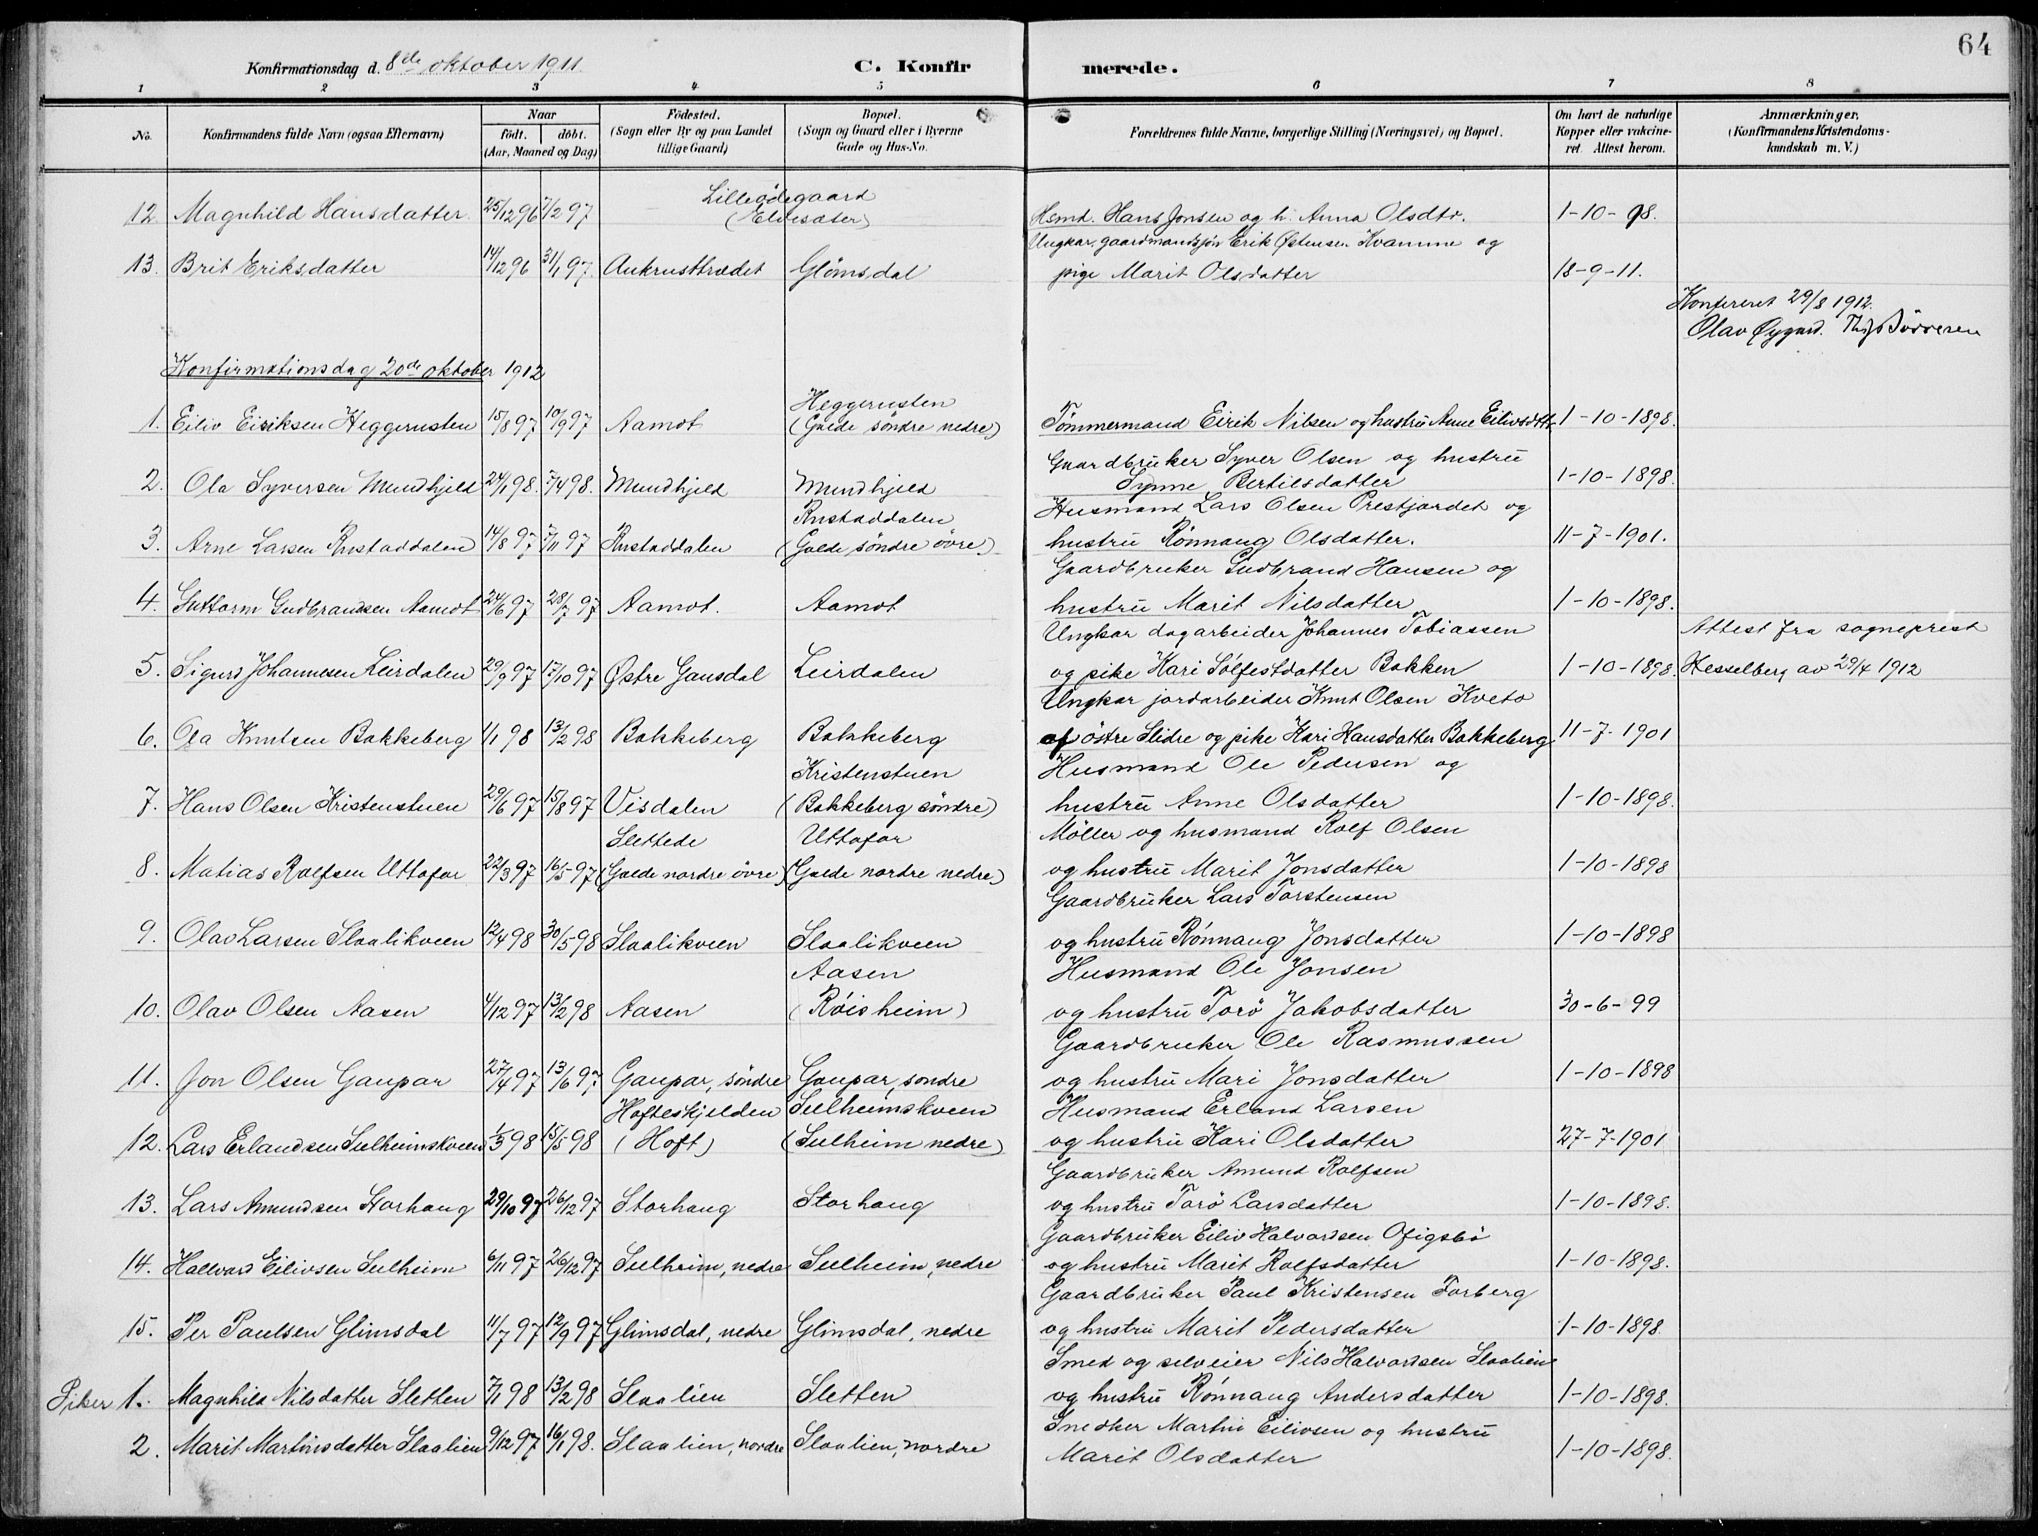 64
Konfirmationsdag d. 8de oktober 1911.
C. Konfirmerede.
1 2 3 4 5 6 7 8
No. Konfirmandens fulde Navn (ogsaa Efternavn)
Naar født. døbt. (Aar, Maaned og Dag)
Fødested. (Sogn eller By og paa Landet tillige Gaard)
Bopæl. (Sogn og Gaard eller i Byerne Gade og Hus-No.
Forældrenes fulde Navne, borgerlige Stilling (Næringsvei) og Bopæl.
Om havt de naturlige Kopper eller vakcineret. Attest herom.
Anmærkninger, (Konfirmandens Kristendomskundskab m. V.)
Lilleødegaard
12. Magnhild Hansdatter 25/12 96 7/2 97 (Elvesæter) Hsmd. Hans Jonsen og h. Anna Olsdtr. 1-10-98.
Ungkar, gaardmandssøn Erik Østensen Kvamme og
13. Brit Eriksdatter 14/12 96 31/1 97. Aukrusttrædet Glömsdal pige Marit Olsdatter 18-9-11.
Konfereret 29/8 1912.
Olav Øygard.
Konfirmationsdag 20de oktober 1912
Heggerusten
1. Eiliv Eiriksen Heggerusten 15/8 97 10/9 97 Aamot (Galde söndre nedre) Tömmermand Eirik Nilsen og hustru Anne Eilivsdtr. 1-10-1898.
Gaardbruker Syver Olsen og hustru
2. Ola Syversen Mundhjeld 24/1 98. 7/4 98. Mundhjeld Mundhjeld Synne Bertilsdatter 1-10-1898.
Rustaddalen Husmand Lars Olsen Prestjordet og
3. Arne Larsen Rustaddalen 14/8 97 7/11 97 Rustaddalen (Galde söndre övre) hustru Rönnaug Olsdatter. 11-7-1901.
Gaardbruker Gudbrand Hansen og
4. Guttorm Gudbrandsen Aamot 24/6 97 28/7 97 Aamot. Aamot hustru Marit Nilsdatter 1-10-1898.
Ungkar dagarbeider Johannes Tobiassen Attest fra sogneprest
5. Sigurd Johannesen Leirdalen 29/9 97 17/10 97 Østre Gausdal Leirdalen og pike Kari Sölfestdatter Bakken 1-10-1898. Hesselberg av 29/4 1912
Ungkar jordarbeider Knut Olsen Kveto
6. Ola Knutsen Bakkeberg 1/1 98 13/2 98 Bakkeberg Bakkeberg af östre Slidre og pike Kari Hansdatter Bakkeberg 11-7-1901
Kristenstuen Husmand Ole Pedersen og
7. Hans Olsen Kristenstuen 29/6 97 15/8 97 Visdalen (Bakkeberg söndre) hustru Anne Olsdatter 1-10-1898.
Slettede Uttofar Möller og husmand Rolf Olsen
8. Matias Rolfsen Uttofar 22/3 97 16/5 97 (Galde nordre övre) (Galde nordre nedre) og hustru Marit Jonsdatter 1-10-1898
Gaardbruker Lars Torstensen
9. Olav Larsen Slaalikveen 12/4 98 30/5 98 Slaalikveen Slaalikveen og hustru Rönnaug Jonsdatter 1-10-1898
Aasen Husmand Ole Jonsen
10. Olav Olsen Aasen 4/12 97 13/2 98 Aasen (Röisheim) og hustru Torö Jakobsdatter 30-6-99
Gaardbruker Ole Rasmussen
11. Jon Olsen Gaupar 27/4 97 13/6 97. Gaupar, söndre Gaupar, sondre og hustru Mari Jonsdatter 1-10-1898
Hofteskjelden Sulheimskveen Husmand Erland Larsen
12. Lars Erlandsen Sulheimskveen 1/3 98 15/5 98 (Hoft) (Sulheim nedre) og hustru Kari Olsdatter 27-7-1901
Gaardbruker Amund Rolfsen
13. Lars Amundsen Storhaug 29/10 97 26/12 97 Storhaug Storhaug og hustru Torö Larsdatter 1-10-1898.
Gaardbruker Eiliv Halvordsen Ofigsbö
14. Halvord Eilivsen Sulheim 6/11 97 26/12 97 Sulheim, nedre Sulheim, nedre og hustru Marit Rolfsdatter 1-10-1898.
Gaardbruker Paul Kristensen Forberg
15. Per Paulsen Glimsdal 11/7 97 12/9 97 Glimsdal, nedre Glimsdal, nedre og hustru Marit Pedersdatter 1-10-1898.
Smed og selveier Nils Halvordsen Slaalien
Piker 1. Magnhild Nilsdatter Sletten 7/1 98 13/2 98 Slaalien Sletten og hustru Rönnaug Andersdatter 1-10-1898.
Snedker Martin Eilivsen og hustru
2. Marit Martinsdatter Slaalien 9/12 97 16/1 98. Slaalien, nordre Slaalien, nordre Marit Olsdatter 1-10-1898.